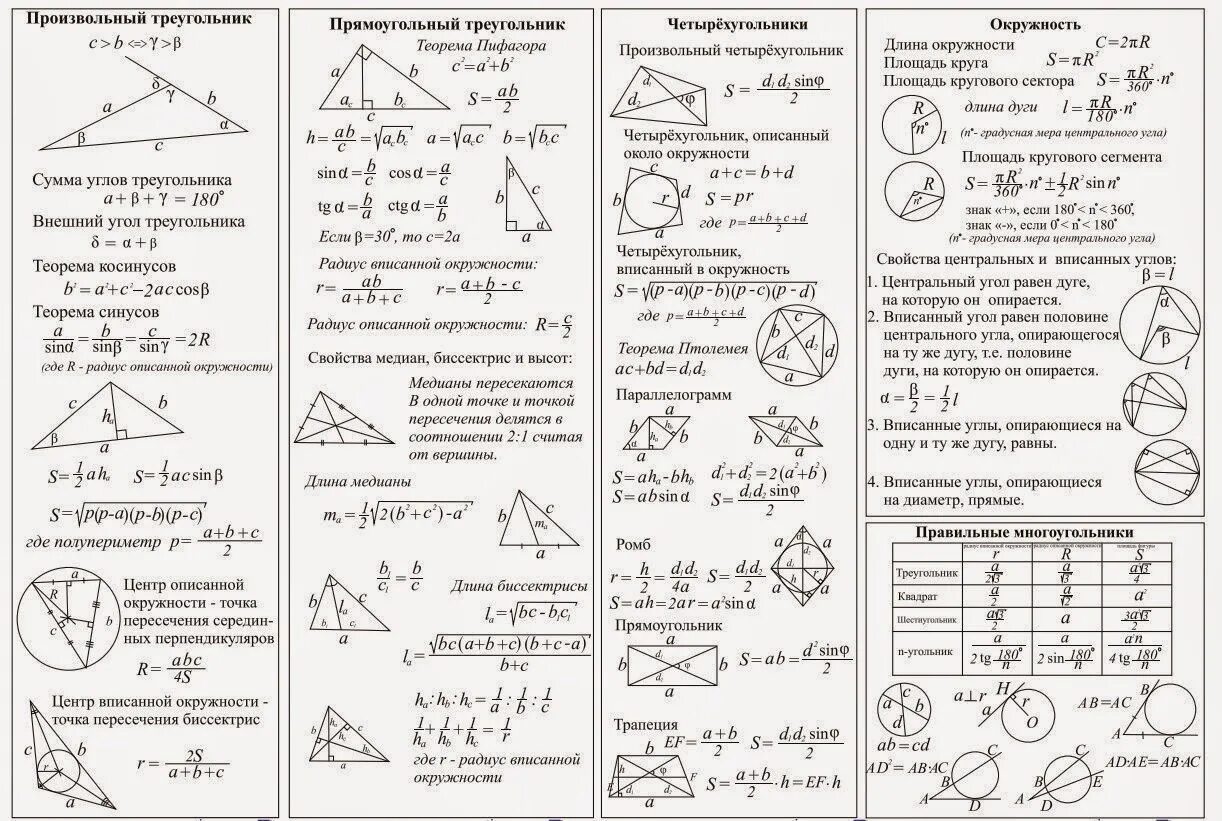 Произвольный треугольник
c > b <=> γ > β
δ
γ
a
b
β
α
c
Сумма углов треугольника
a + β + γ = 180°
Внешний угол треугольника
δ = α + β
Теорема косинусов
b² = a² + c² – 2ac cosβ
Теорема синусов
a/sinα = b/sinβ = c/sinγ = 2R
(где R - радиус описанной окружности)
c
b
hₐ
β
a
S = 1/2 ahₐ S = 1/2 ac sinβ
S = √(p(p-a)(p-b)(p-c))
где полупериметр p = (a+b+c)/2
a
R
c
b
Центр описанной
окружности - точка
пересечения середин-
ных перпендикуляров
R = abc/4S
Центр вписанной окружности -
точка пересечения биссектрис
c
b
r
a
r = 2S/(a+b+c)
Прямоугольный треугольник
Теорема Пифагора
c² = a² + b²
a
b
a_c
b_c
c
S = ab/2
h = ab/c = √(a_c b_c) a = √(a_c c) b = √(b_c c)
sinα = b/c cosα = a/c
tgα = b/a ctgα = a/b
β
c
b
α
a
Если β=30°, то c=2a
Радиус вписанной окружности:
r = ab/(a+b+c) r = (a+b-c)/2
Радиус описанной окружности: R = c/2
Свойства медиан, биссектрис и высот:
Медианы пересекаются
В одной точке и точкой
пересечения делятся в
соотношении 2:1 считая
от вершины.
Длина медианы
mₐ = 1/2 √(2(b²+c²)-a²)
b
c
mₐ
a
b
c
lₐ
b₁
c₁
a
b₁/c₁ = b/c
Длина биссектрисы
lₐ = √(bc - b₁c₁)
lₐ = √(bc(a+b+c)(b+c-a))/(b+c)
b
c
a
hₐ : h_b : h_c = 1/a : 1/b : 1/c
1/hₐ + 1/h_b + 1/h_c = 1/r
где r - радиус вписанной
окружности
Четырёхугольники
Произвольный четырёхугольник
d₁
d₂
φ
S = d₁d₂ sinφ/2
Четырёхугольник, описанный
около окружности
c
b
d
r
a
a + c = b + d
S = pr
где p = (a+b+c+d)/2
Четырёхугольник,
вписанный в окружность
S = √((p-a)(p-b)(p-c)(p-d))
где p = (a+b+c+d)/2
c
b
d₂
d₁
d
a
Теорема Птолемея
ac + bd = d₁d₂
Параллелограмм
a
b
hₐ
h_b
b
α
a
a
b
φ
b
a
S = ahₐ - bh_b d₁² + d₂² = 2(a² + b²)
S = ab sinα S = d₁d₂ sinφ/2
Ромб
r = h/2 = d₁d₂/4a S = d₁d₂/2
S = ah = 2ar = a² sinα
a
α
a
d₁
h
r
a
a
Прямоугольник
a
b
d₁
d₂
φ
b
a
S = ab = d² sinφ/2
Трапеция
EF = (a+b)/2 S = d₁d₂ sinφ/2
S = (a+b)/2 · h = EF · h
b
h
φ
E
F
d₁
d₂
a
Окружность
Длина окружности C = 2πR
Площадь круга S = πR²
Площадь кругового сектора S = πR²/360° · n°
R
n°
l
длина дуги l = πR/180° · n°
(n°- градусная мера центрального угла)
Площадь кругового сегмента
R
n°
S = πR²/360° · n° ± 1/2 R² sin n°
знак «+», если 180° < n° < 360°,
знак «-», если 0° < n° < 180°
(n°- градусная мера центрального угла)
Свойства центральных и вписанных углов:
1. Центральный угол равен дуге,
на которую он опирается.
2. Вписанный угол равен половине
центрального угла, опирающегося
на ту же дугу, т.е. половине
дуги, на которую он опирается.
α = β/2 = 1/2 l
β = l
α
β
l
3. Вписанные углы, опирающиеся на
одну и ту же дугу, равны.
4. Вписанные углы, опирающиеся
на диаметр, прямые.
Правильные многоугольники
радиус вписанной окружности радиус описанной окружности площадь фигуры
r R S
Треугольник a/2√3 a/√3 a²√3/4
Квадрат a/2 a/√2 a²
Шестиугольник a√3/2 a 3a²√3/2
n-угольник a/(2 tg 180°/n) a/(2 sin 180°/n) a²n/(4 tg 180°/n)
c
a
b
d
ab = cd
a⊥r
H
a
r
O
AB = AC
B
A
C
AD² = AB·AC
C
B
A
D
AD·AE = AB·AC
C
B
E
A
D